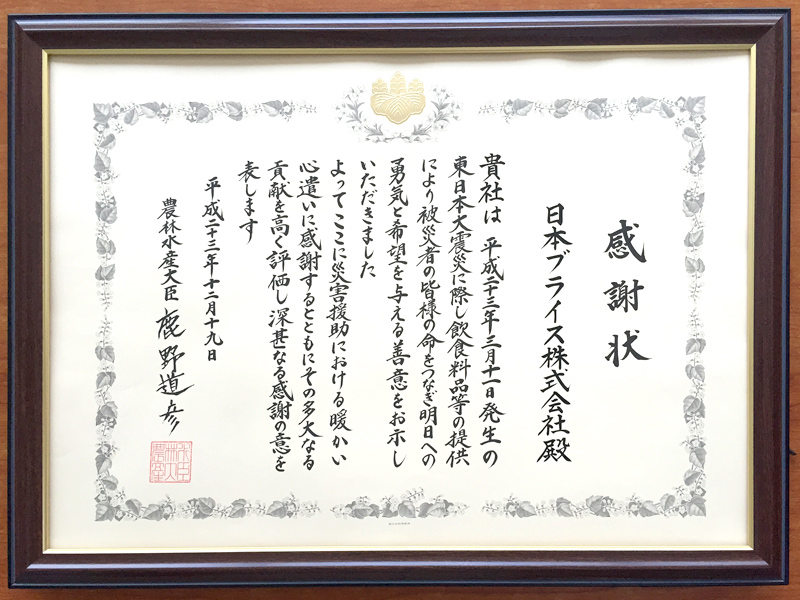 感謝状
日本ブライス株式会社殿
貴社は 平成二十三年三月十一日発生の
東日本大震災に際し飲食料品等の提供
により被災者の皆様の命をつなぎ明日への
勇気と希望を与える善意をお示し
いただきました
よってここに災害援助における暖かい
心遣いに感謝するとともにその多大なる
貢献を高く評価し深甚なる感謝の意を
表します
平成二十三年十二月十九日
農林水産大臣 鹿野道彦